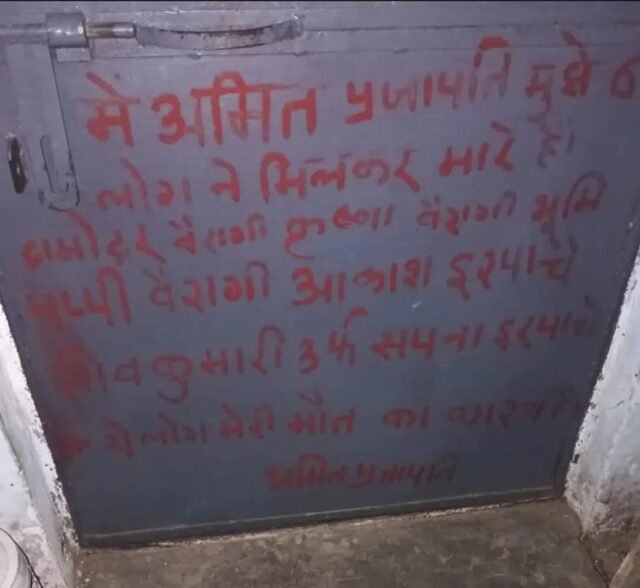 में अमित प्रजापति मुझे 6
लोग ने मिलकर मारे है
दामोदर वैरागी कृष्णा वैरागी भूमि
पप्पी वैरागी आकाश इरपाचे
शिवकुमारी उर्फ सपना इरपाचे
ये लोग मेरी मौत का कारण है
अमित प्रजापति